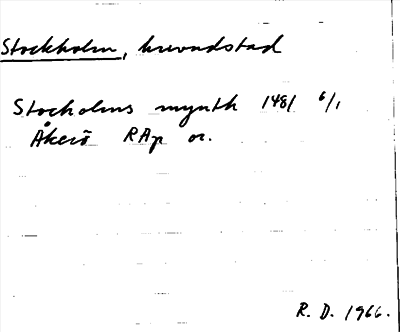 Stockholm, huvudstad
Stocholms mynth 1481 6/1
Åkerö RAp or.
R. D. 1966.